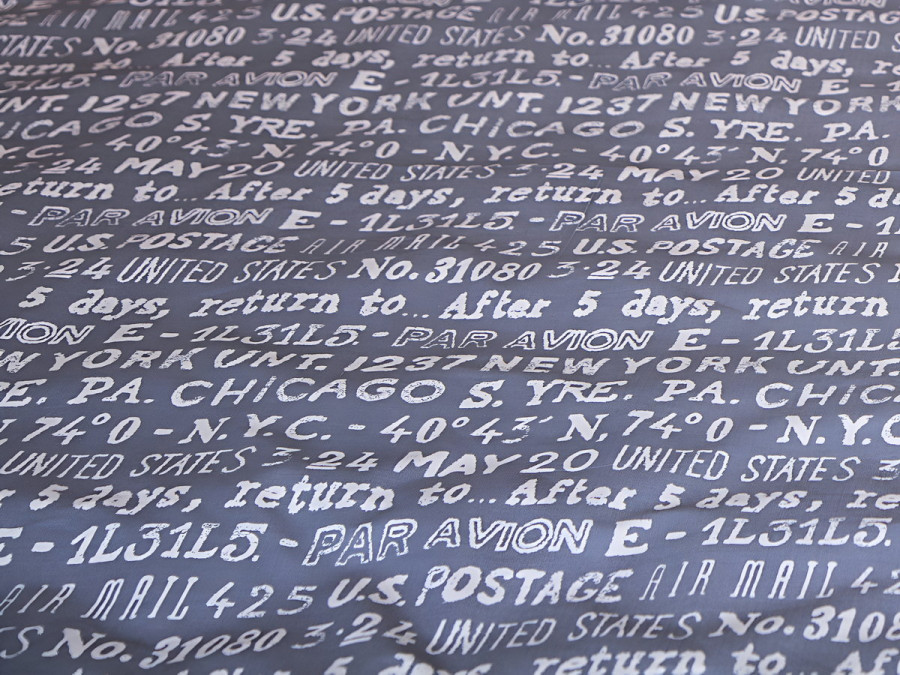 AIR MAIL 425 U.S. POSTAGE AIR MAIL 425 U.S. POSTAGE
STATES No. 31080 3·24 UNITED STATES No. 31080 3·24 UNITED
return to... After 5 days, return to... After 5 days, re
1L31L5. - PAR AVION E - 1L31L5. - PAR AVION E - 1L
UNT. 1237 NEW YORK UNT. 1237 NEW YORK
CHICAGO S. YRE. PA. CHICAGO S. YRE. PA.
Y.C. - 40°43' N. 74°0 - N.Y.C. - 40°43' N. 74°0
3·24 MAY 20 UNITED STATES 3·24 MAY 20 UNITED
return to... After 5 days, return to... After 5 da
- PAR AVION E - 1L31L5. - PAR AVION E - 1L
5 U.S. POSTAGE AIR MAIL 425 U.S. POSTAGE AIR
3·24 UNITED STATES No. 31080 3·24 UNITED STATES
5 days, return to... After 5 days, return
ION E - 1L31L5. - PAR AVION E - 1L31L5
W YORK UNT. 1237 NEW YORK UNT.
E. PA. CHICAGO S. YRE. PA. CHICA
N. 74°0 - N.Y.C. - 40°43' N. 74°0 - N.Y.C
UNITED STATES 3·24 MAY 20 UNITED STATES 3
r 5 days, return to... After 5 days, re
E - 1L31L5. - PAR AVION E - 1L31L5.
AIR MAIL 425 U.S. POSTAGE AIR MAIL 42
S No. 31080 3·24 UNITED STATES No. 3108
5 days, return to... Af